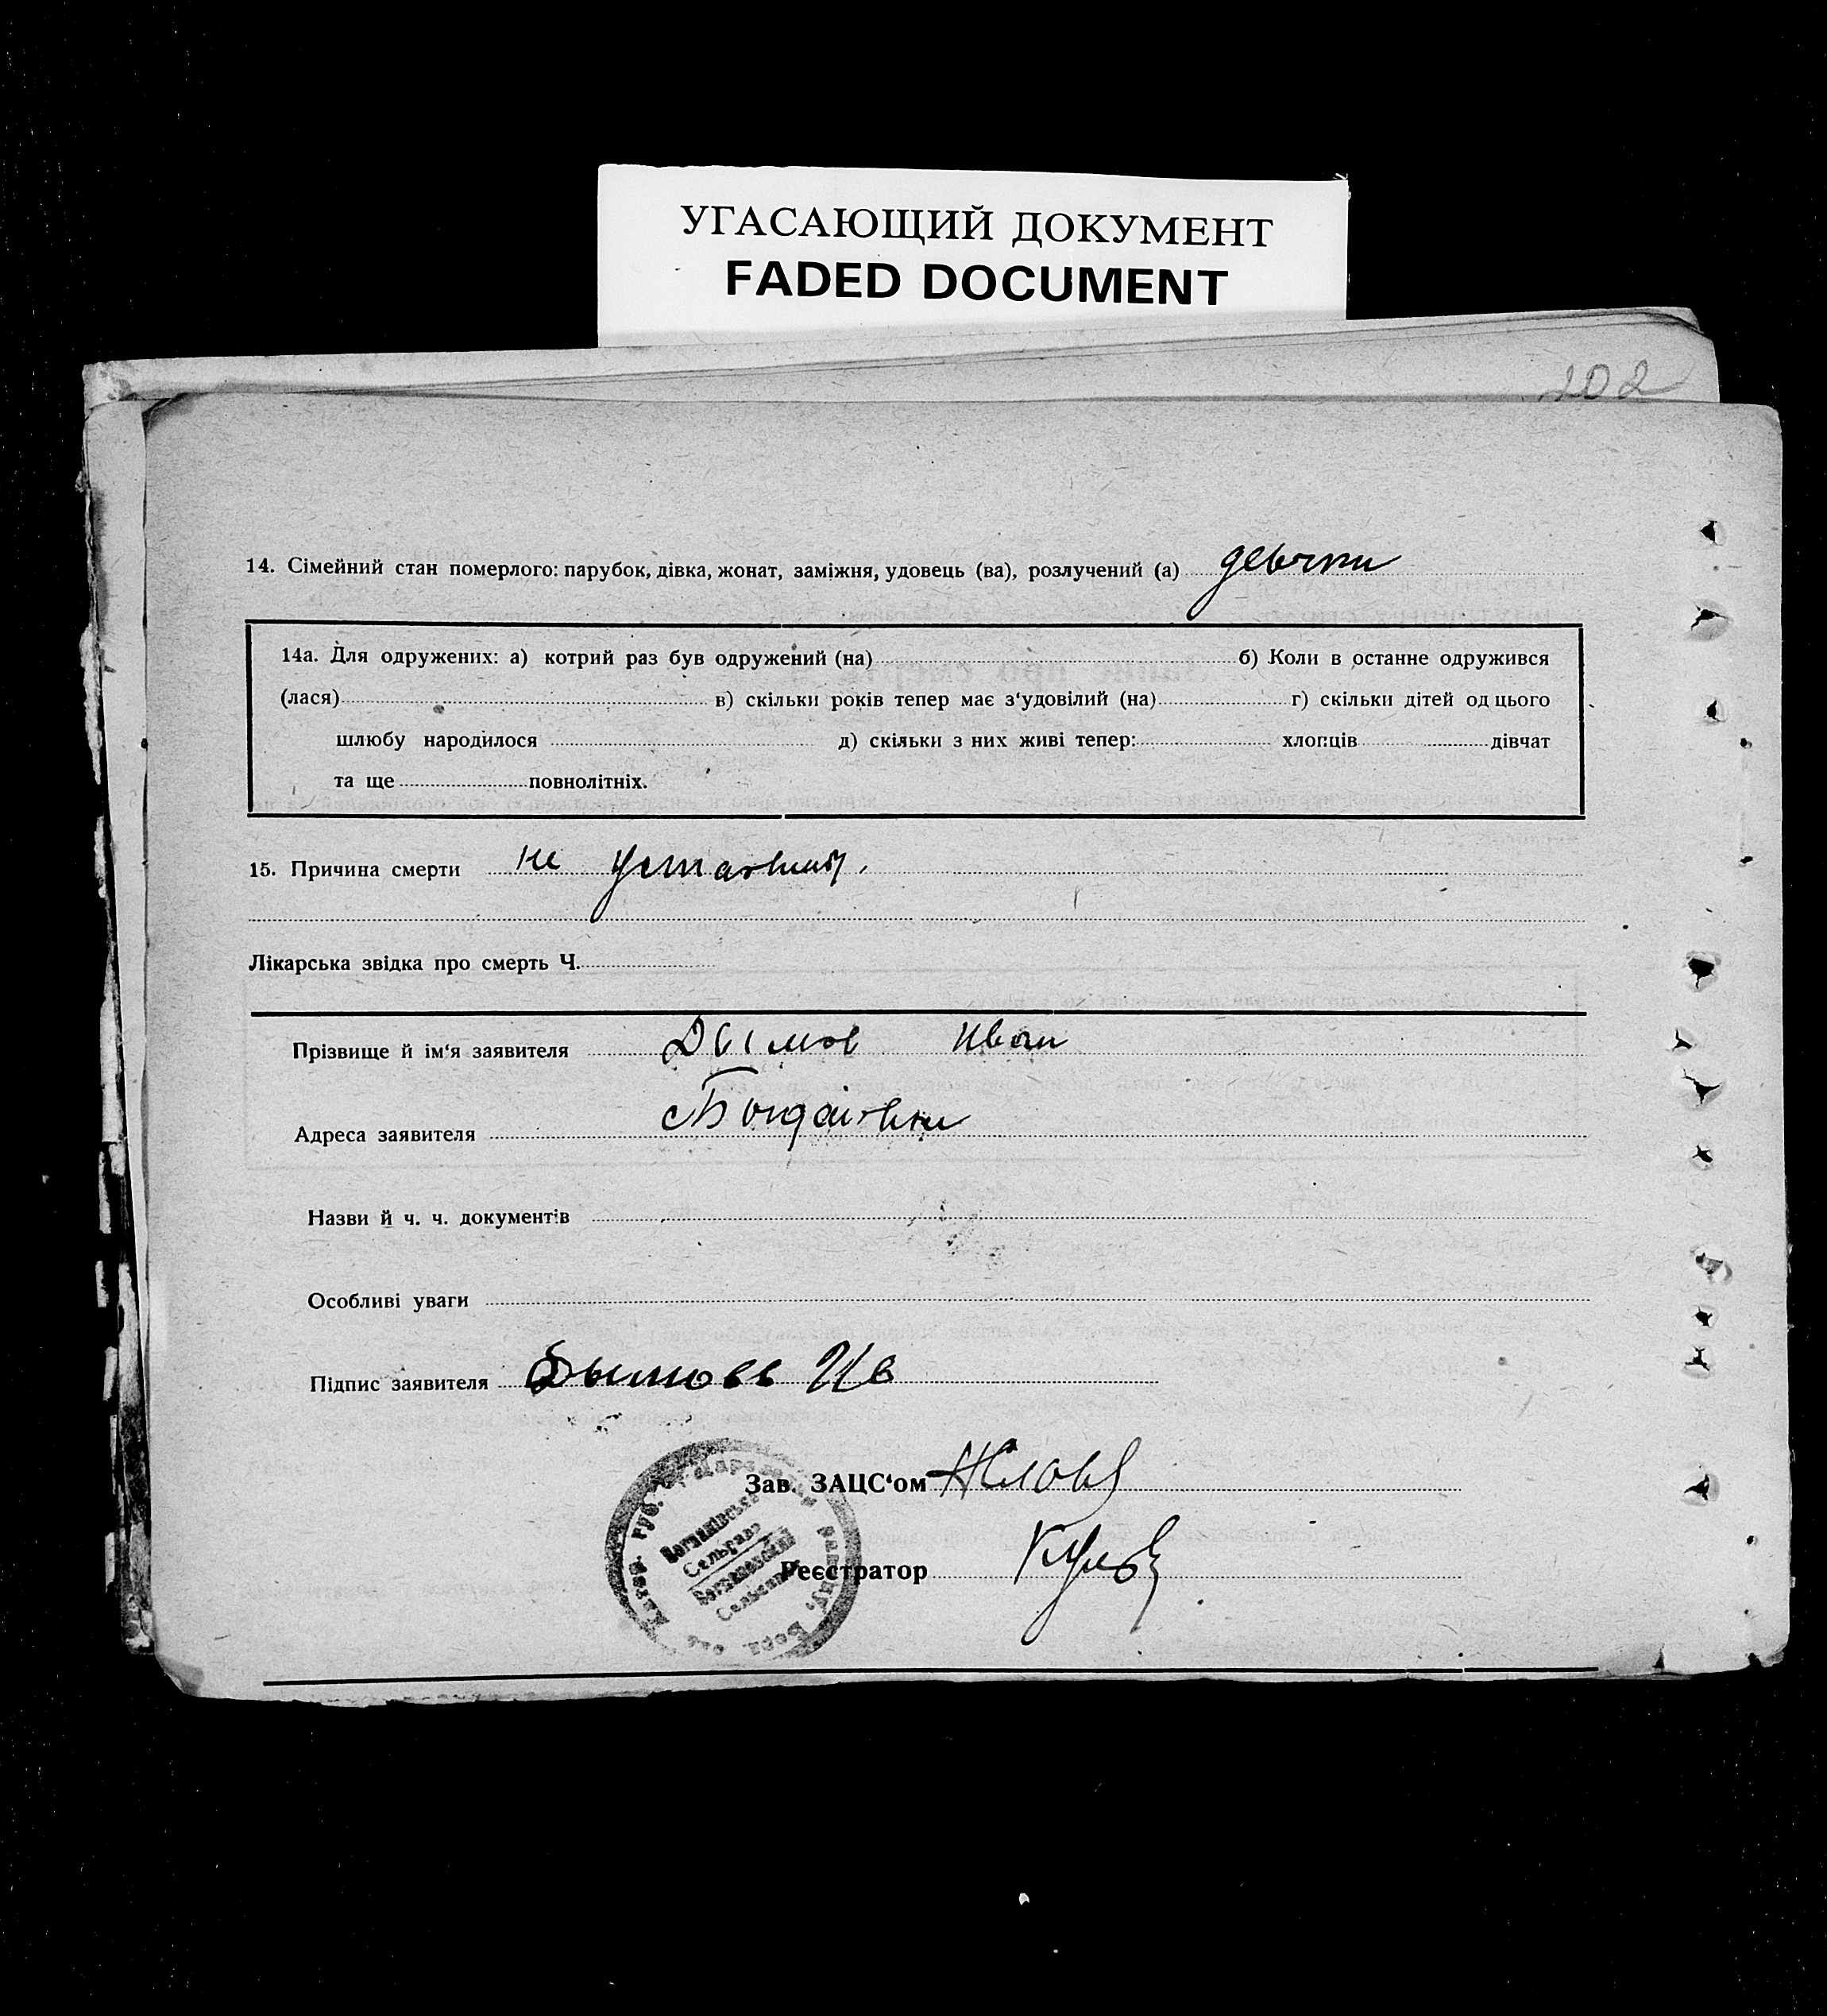 УГАСАЮЩИЙ ДОКУМЕНТ
FADED DOCUMENT
202
14. Сімейний стан померлого: парубок, дівка, жонат, заміжня, удовець (ва), розлучений (а)
14а. Для одружених: а) котрий раз був одружений (на) б) Коли в останне одружився
(лася) в) скільки років тепер має з‘удовілий (на) г) скільки дітей од цього
шлюбу народилося д) скільки з них живі тепер: хлопців дівчат
та ще повнолітніх.
15. Причина смерти не
Лікарська звідка про смерть Ч.
Прізвище й ім‘я заявителя Дымов Иван
Адреса заявителя с Богдановка
Назви й ч. ч. документів
Особливі уваги
Підпис заявителя Дымовь Ив
Зав. ЗАЦС‘ом
Реєстратор
Сельрада